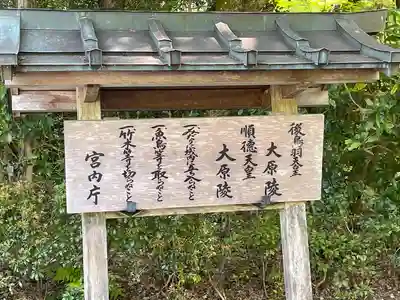 後鳥羽天皇
大原陵
順德天皇
大原陵
一、みだりに域内に立入らぬこと
一、魚鳥等を取らぬこと
一、竹木等を切らぬこと
宮内庁